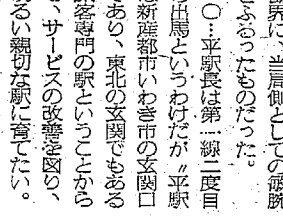 界に、当局側としての敏腕
をふるったものだった。
○…平駅長は第一線二度目
の出馬というわけだが〝平駅
は新産都市いわき市の玄関口
であり、東北の玄関でもある
旅客専門の駅ということから
、サービスの改善を図り、
るい親切な駅に育てたい。